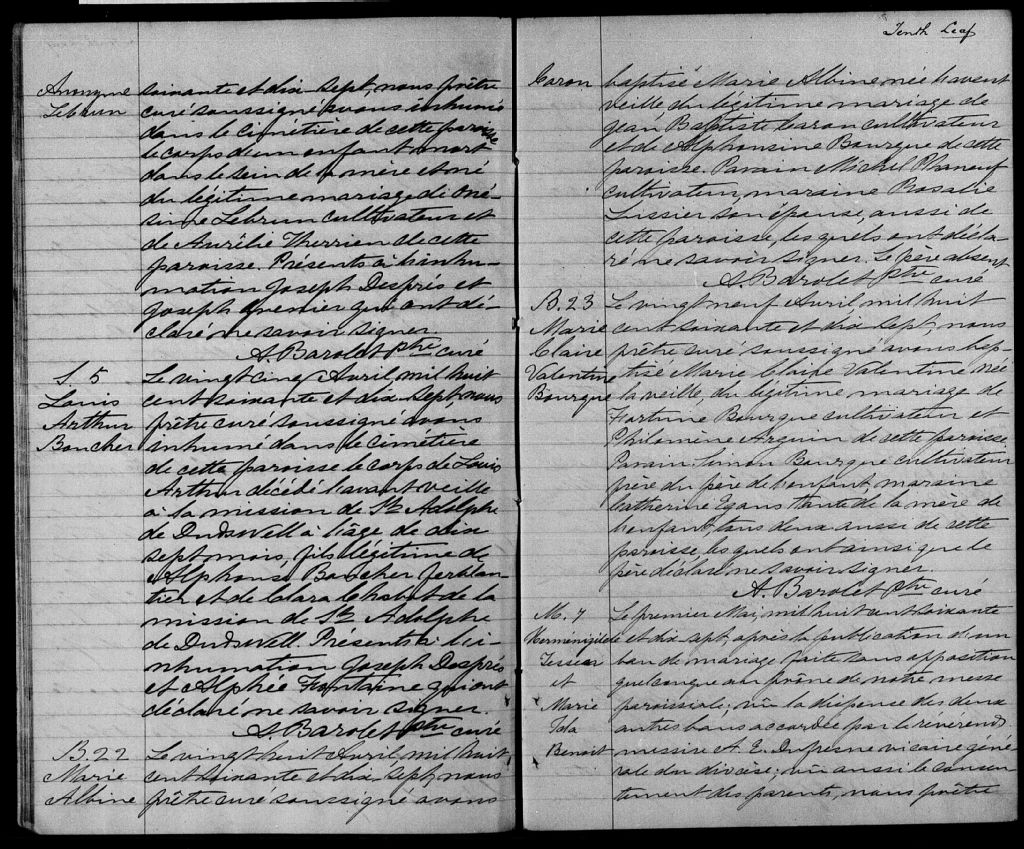 Anonyme
Lebrun
soixante et dix-sept, nous prêtre
curé soussigné avons inhumé
dans le cimétière de cette paroisse
le corps d'un enfant mort
dans le sein de la mère et né
du légitime mariage de Oné-
sime Lebrun cultivateur et
de Aurélie Therrien de cette
paroisse. Présents à l'inhu-
mation Joseph Després et
Joseph Grenier qui ont dé-
claré ne savoir signer.
A. Barolet ptre curé
S. 5
Louis
Arthur
Boucher
Le vingt cinq Avril, mil huit
cent soixante et dix-sept, nous
prêtre curé soussigné avons
inhumé dans le cimetière
de cette paroisse le corps de Louis
Arthur décédé l'avant veille
à la mission de St Adolphe
de Dudswell à l'âge de dix
sept mois, fils légitime de
Alphonse Boucher ferblan-
tier et de Clara Chabot de la
mission de St Adolphe
de Dudswell. Présents à l'i-
nhumation Joseph Després
et Alphée Fontaine qui ont
déclaré ne savoir signer.
A. Barolet ptre curé
B. 22
Marie
Albine
Le vingt huit Avril, mil huit
cent soixante et dix-sept, nous
prêtre curé soussigné avons
Tenth Leaf
Caron
baptisé Marie Albine née l'avent
veille du légitime mariage de
Jean Baptiste Caron cultivateur
et de Alphonsine Bourque de cette
paroisse. Parain Michel Phaneuf
cultivateur, maraine Rosalie
Lussier son épouse, aussi de
cette paroisse, lesquels ont décla-
ré ne savoir signer. Le père absent
A. Barolet ptre curé
B. 23
Marie
Claire
Valentine
Bourque
Le vingt neuf Avril mil huit
cent soixante et dix-sept, nous
prêtre curé soussigné avons bap-
tisé Marie Claire Valentine née
la veille, du légitime mariage de
Fortune Bourque cultivateur et
Philomène Arguin de cette paroisse
Parain Simon Bourque cultivateur
père du père de l'enfant, maraine
Catherine Egans tante de la mère de
l'enfant, tous deux aussi de cette
paroisse, lesquels ont ainsi que le
père déclaré ne savoir signer.
A. Barolet ptre curé
M. 7
Herménégilde
Tessier
et
Marie
Ida
Benoit
Le premier Mai, mil huit cent soixante
et dix-sept, après la publication d'un
ban de mariage faite sans opposition
quelconque au prône de notre messe
paroissiale; vu la dispense des deux
autres bans accordée par le reverend
messire A. E. Dufresne vicaire géné-
rale du diocèse; vu aussi le consen-
tement des parents, nous prêtre